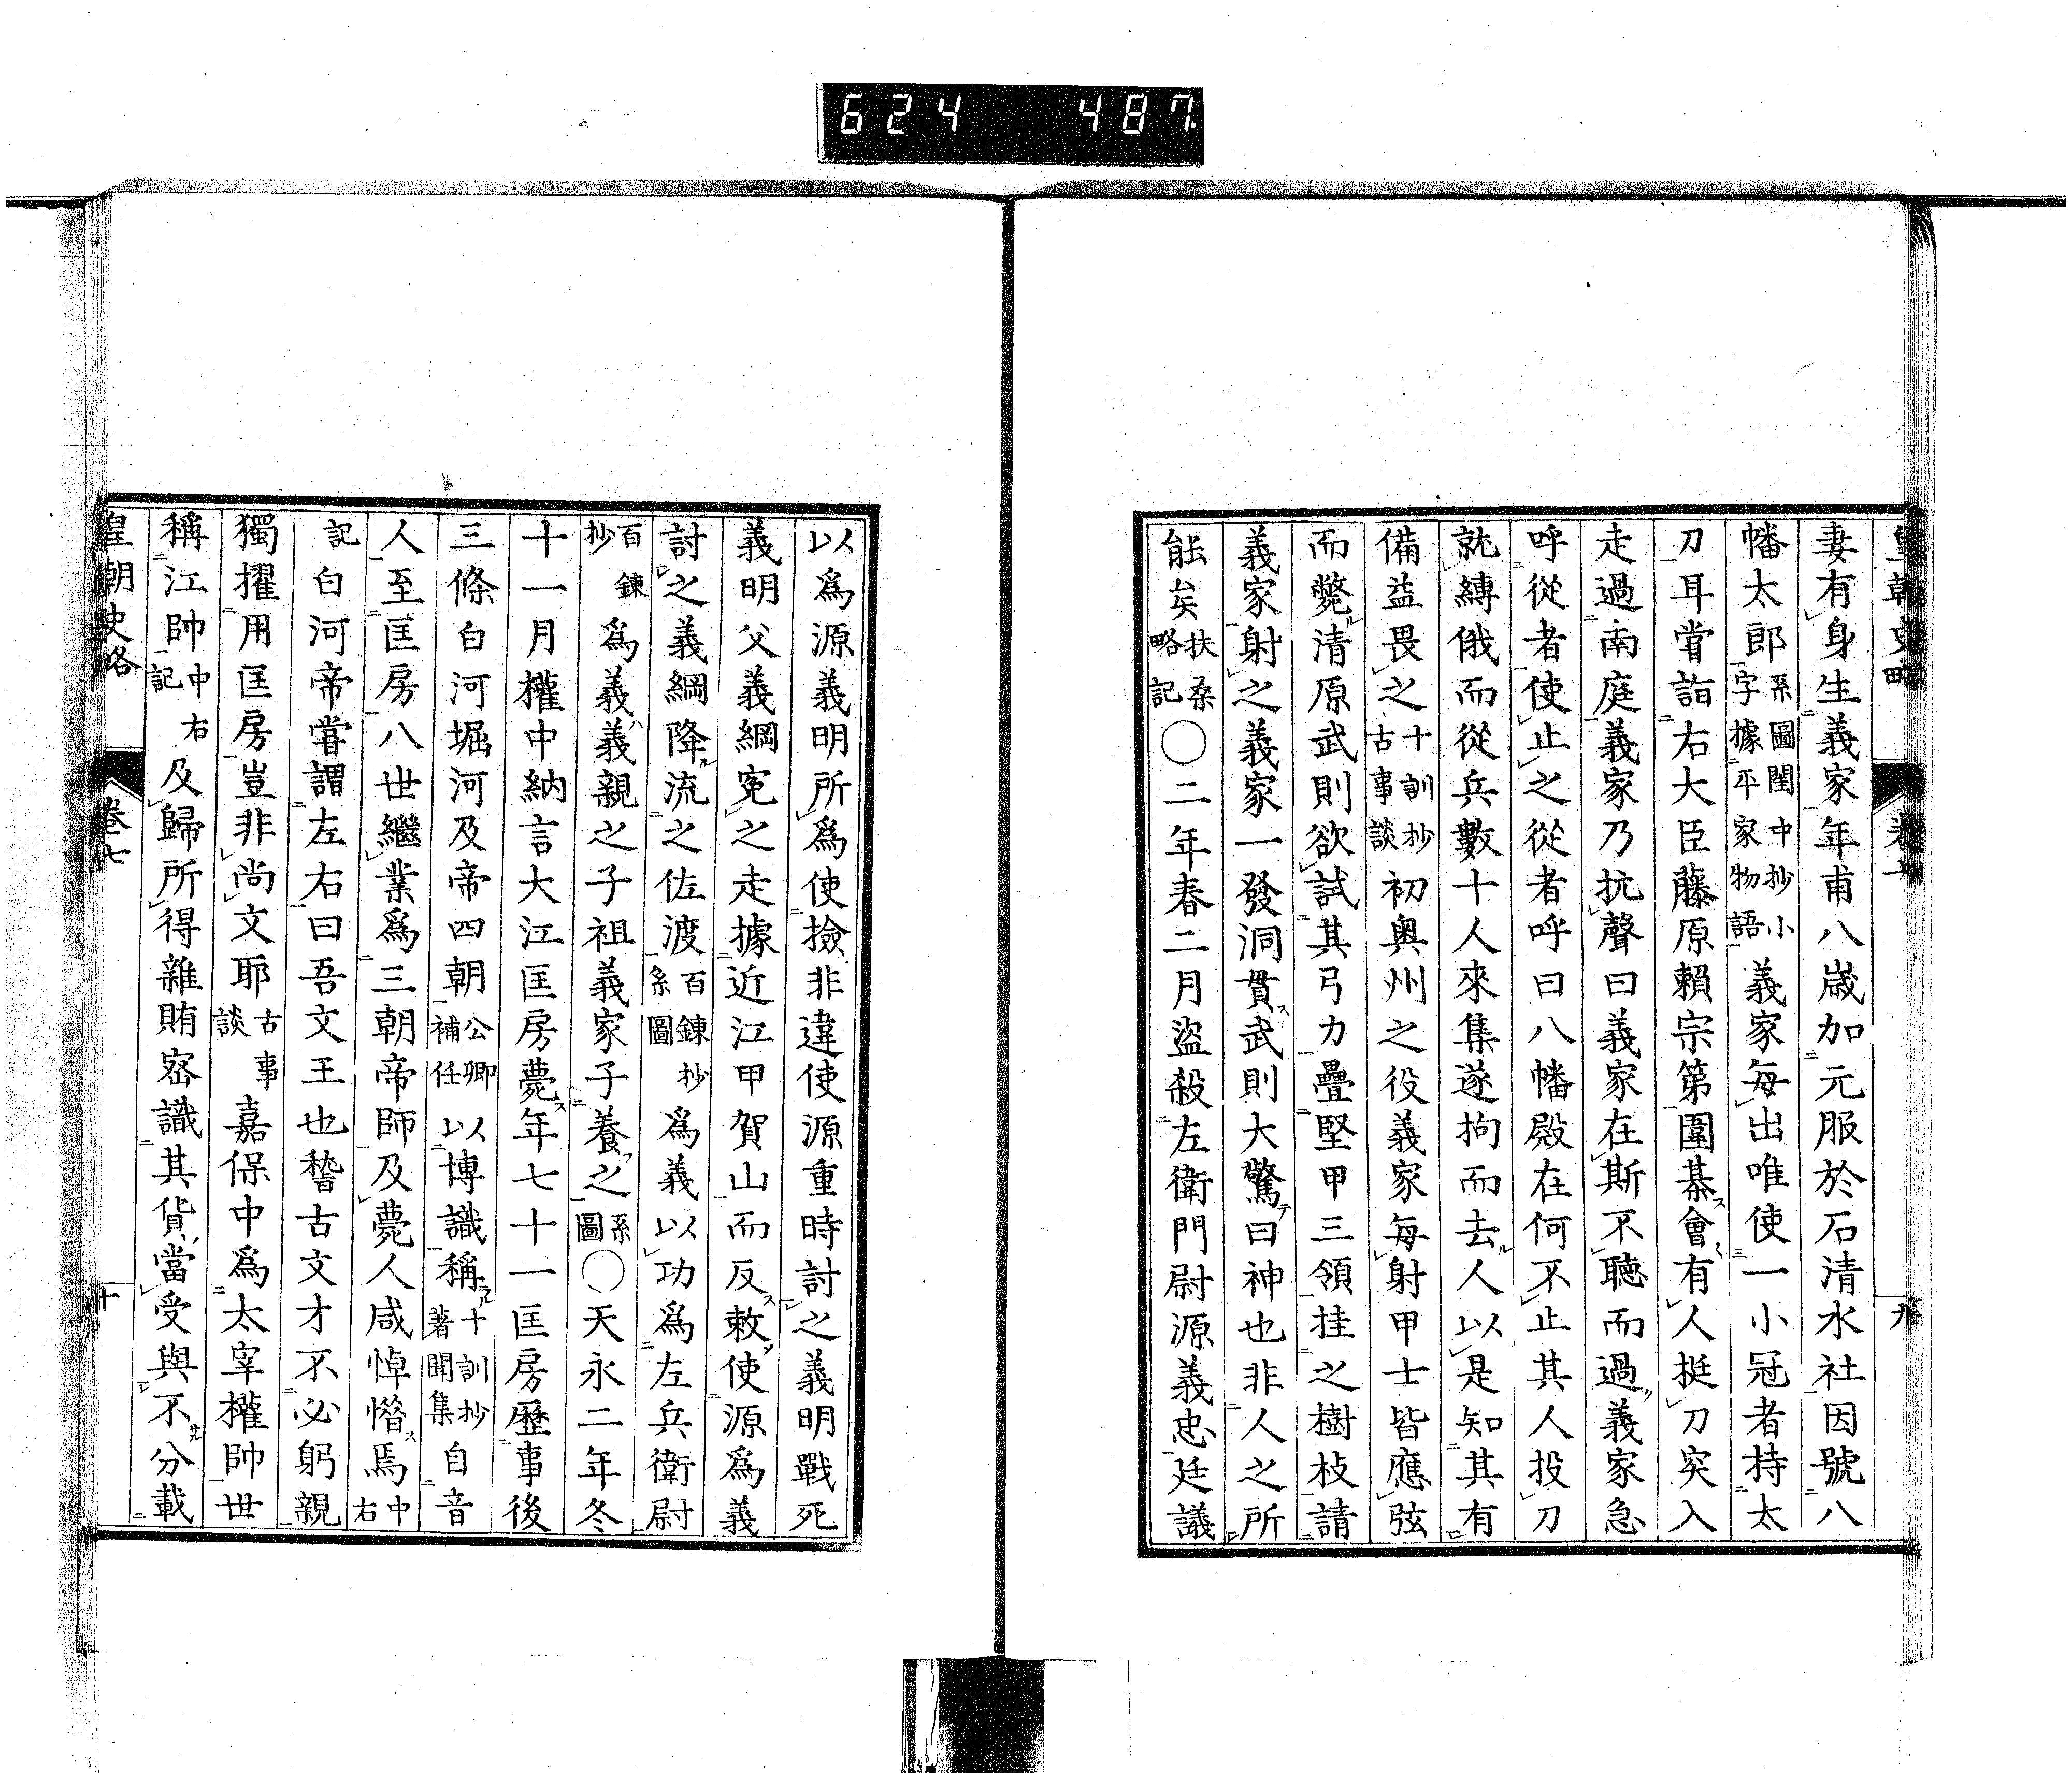 624 487.
皇朝史略 卷七 九
妻有身生義家年甫八歲加元服於石清水社因號八
幡太郎系圖閏中抄小字據平家物語義家每出唯使一小冠者持太
刀耳嘗詣右大臣藤原賴宗第圍棊會有人挺刀突入
走過南庭義家乃抗聲曰義家在斯不聽而過義家急
呼從者使止之從者呼曰八幡殿在何不止其人投刀
就縛俄而從兵數十人來集遂拘而去人以是知其有
備益畏之十訓抄古事談初奥州之役義家每射甲士皆應弦
而斃清原武則欲試其弓力疊堅甲三領挂之樹枝請
義家射之義家一發洞貫武則大驚曰神也非人之所
能矣扶桑略記〇二年春二月盜殺左衛門尉源義忠廷議
以爲源義明所爲使撿非違使源重時討之義明戰死
義明父義綱寃之走據近江甲賀山而反敕使源爲義
討之義綱降流之佐渡百鍊抄系圖爲義以功爲左兵衛尉
百鍊抄爲義義親之子祖義家子養之系圖〇天永二年冬
十一月權中納言大江匡房薨年七十一匡房歷事後
三條白河堀河及帝四朝公卿補任以博識稱十訓抄著聞集自音
人至匡房八世繼業爲三朝帝師及薨人咸悼惜焉中右
記白河帝嘗謂左右曰吾文王也稽古文才不必躬親
獨擢用匡房豈非尚文耶古事談嘉保中爲太宰權帥世
稱江帥中右記及歸所得雜賄密識其貨當受與不分載
皇朝史略 卷七 十